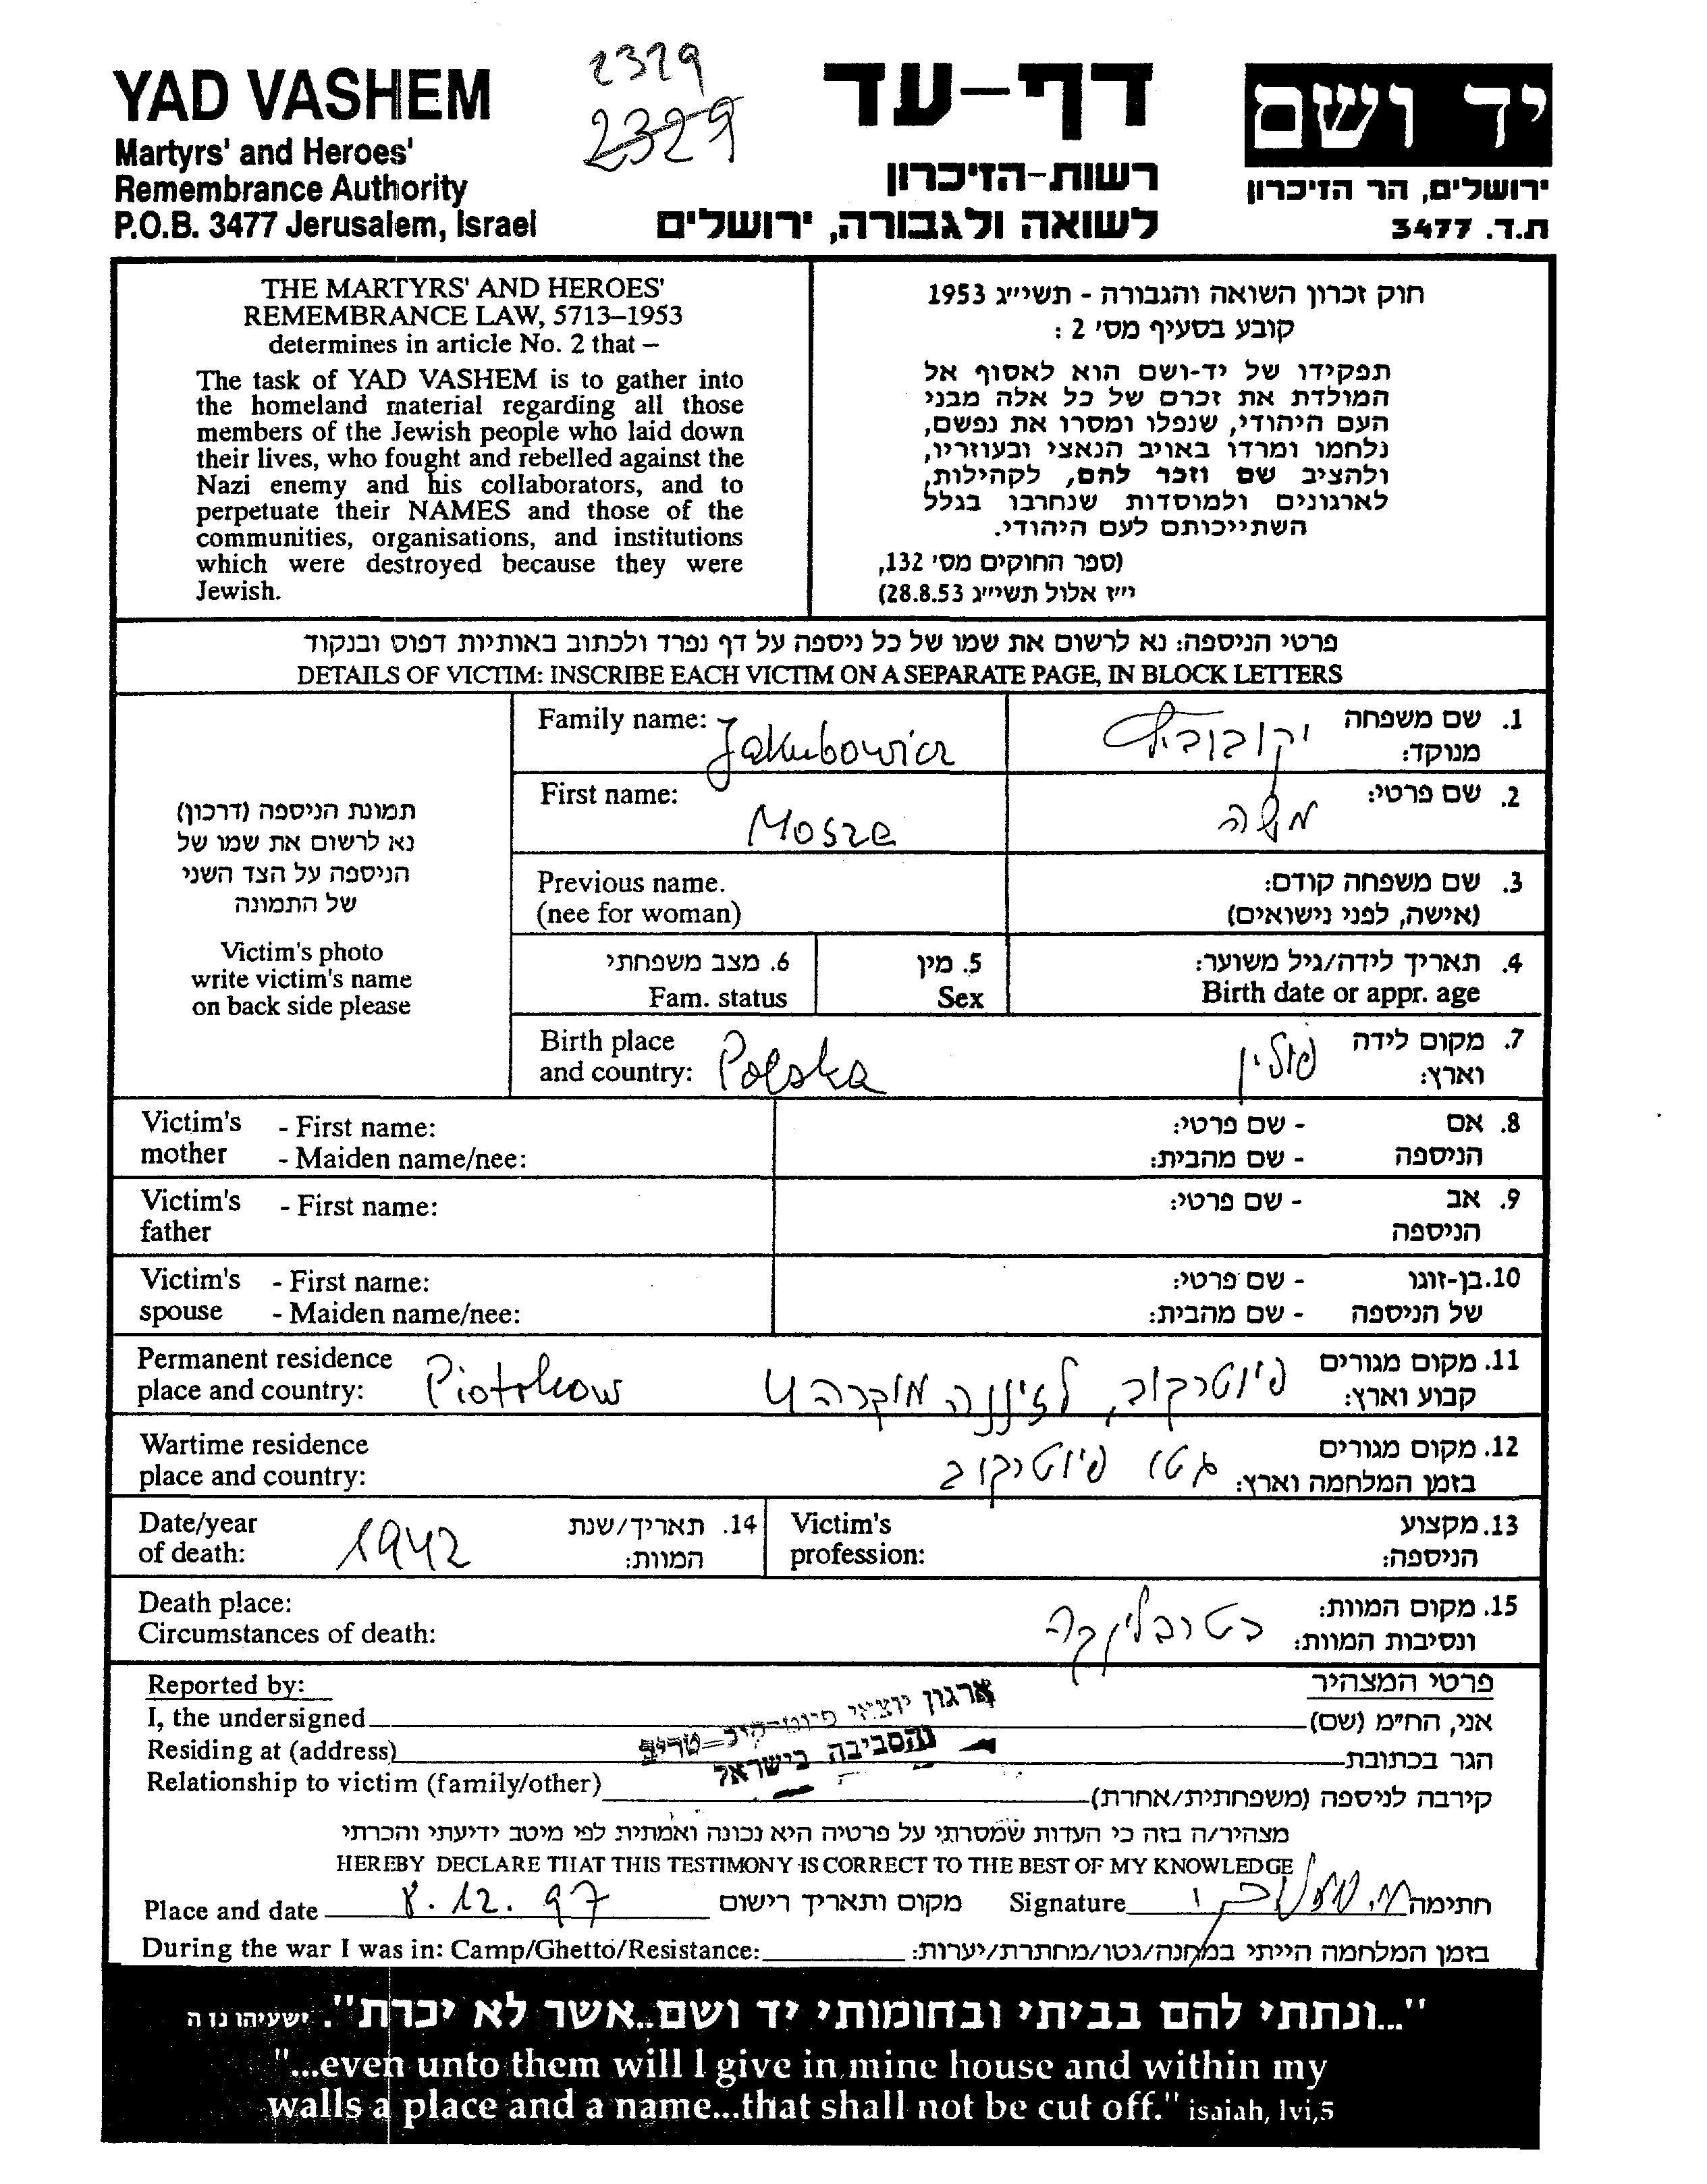 YAD VASHEM
Martyrs' and Heroes'
Remembrance Authority
P.O.B. 3477 Jerusalem, Israel
2329
2329
דף-עד
רשות-הזיכרון
לשואה ולגבורה, ירושלים
יד ושם
ירושלים, הר הזיכרון
ת.ד. 3477
THE MARTYRS' AND HEROES'
REMEMBRANCE LAW, 5713–1953
determines in article No. 2 that –
The task of YAD VASHEM is to gather into
the homeland material regarding all those
members of the Jewish people who laid down
their lives, who fought and rebelled against the
Nazi enemy and his collaborators, and to
perpetuate their NAMES and those of the
communities, organisations, and institutions
which were destroyed because they were
Jewish.
חוק זכרון השואה והגבורה - תשי״ג 1953
קובע בסעיף מס׳ 2 :
תפקידו של יד-ושם הוא לאסוף אל
המולדת את זכרם של כל אלה מבני
העם היהודי, שנפלו ומסרו את נפשם,
נלחמו ומרדו באויב הנאצי ובעוזריו,
ולהציב שם וזכר להם, לקהילות,
לארגונים ולמוסדות שנחרבו בגלל
השתייכותם לעם היהודי.
(ספר החוקים מס׳ 132,
י״ז אלול תשי״ג 28.8.53)
פרטי הניספה: נא לרשום את שמו של כל ניספה על דף נפרד ולכתוב באותיות דפוס ובנקוד
DETAILS OF VICTIM: INSCRIBE EACH VICTIM ON A SEPARATE PAGE, IN BLOCK LETTERS
תמונת הניספה (דרכון)
נא לרשום את שמו של
הניספה על הצד השני
של התמונה
Victim's photo
write victim's name
on back side please
Family name: Jakubowicz יקובוביץ 1. שם משפחה
מנוקד:
First name: Mosze משה 2. שם פרטי:
Previous name. 3. שם משפחה קודם:
(nee for woman) (אישה, לפני נישואים)
6. מצב משפחתי 5. מין 4. תאריך לידה/גיל משוער:
Fam. status Sex Birth date or appr. age
Birth place 7. מקום לידה
and country: Polska פולין וארץ:
Victim's - First name: - שם פרטי: 8. אם
mother - Maiden name/nee: - שם מהבית: הניספה
Victim's - First name: - שם פרטי: 9. אב
father הניספה
Victim's - First name: - שם פרטי: 10. בן-זוגו
spouse - Maiden name/nee: - שם מהבית: של הניספה
Permanent residence 11. מקום מגורים
place and country: Piotrkow פיוטרקוב, 4 קבוע וארץ:
Wartime residence 12. מקום מגורים
place and country: גטו פיוטרקוב בזמן המלחמה וארץ:
Date/year 14. תאריך/שנת Victim's 13. מקצוע
of death: 1942 המוות: profession: הניספה:
Death place: 15. מקום המוות:
Circumstances of death: בטרבלינקה ונסיבות המוות:
Reported by: פרטי המצהיר
I, the undersigned אני, הח״מ (שם)
Residing at (address) הגר בכתובת
Relationship to victim (family/other) קירבה לניספה (משפחתית/אחרת)
ארגון יוצאי פיוטרקוב-טריב
והסביבה בישראל
מצהיר/ה בזה כי העדות שמסרתי על פרטיה היא נכונה ואמתית לפי מיטב ידיעתי והכרתי
HEREBY DECLARE THAT THIS TESTIMONY IS CORRECT TO THE BEST OF MY KNOWLEDGE
Place and date 8.12.97 מקום ותאריך רישום Signature חתימה
During the war I was in: Camp/Ghetto/Resistance: בזמן המלחמה הייתי במחנה/גטו/מחתרת/יערות:
"...ונתתי להם בביתי ובחומותי יד ושם..אשר לא יכרת". ישעיהו נו ה
"...even unto them will I give in mine house and within my
walls a place and a name...that shall not be cut off." isaiah, lvi,5